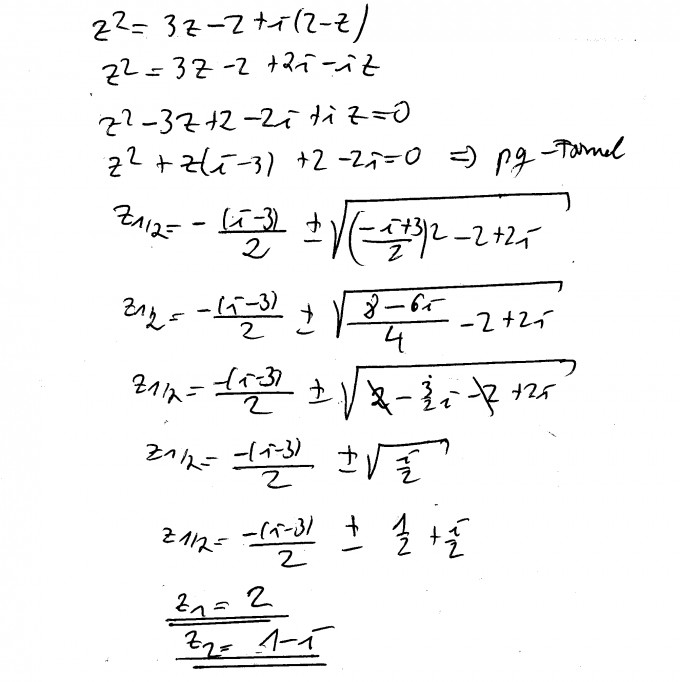 z² = 3z - 2 + i(2-z)
z² = 3z - 2 + 2i - iz
z² - 3z + 2 - 2i + iz = 0
z² + z(i-3) + 2 - 2i = 0 ⇒ pq-Formel
z1/2 = - (i-3)/2 ± √((-i+3)/2)² - 2 + 2i
z1/2 = -(i-3)/2 ± √(8-6i)/4 - 2 + 2i
z1/2 = -(i-3)/2 ± √2 - 3/2 i - 2 + 2i
z1/2 = -(i-3)/2 ± √i/2
z1/2 = -(i-3)/2 ± 1/2 + i/2
z1 = 2
z2 = 1-i